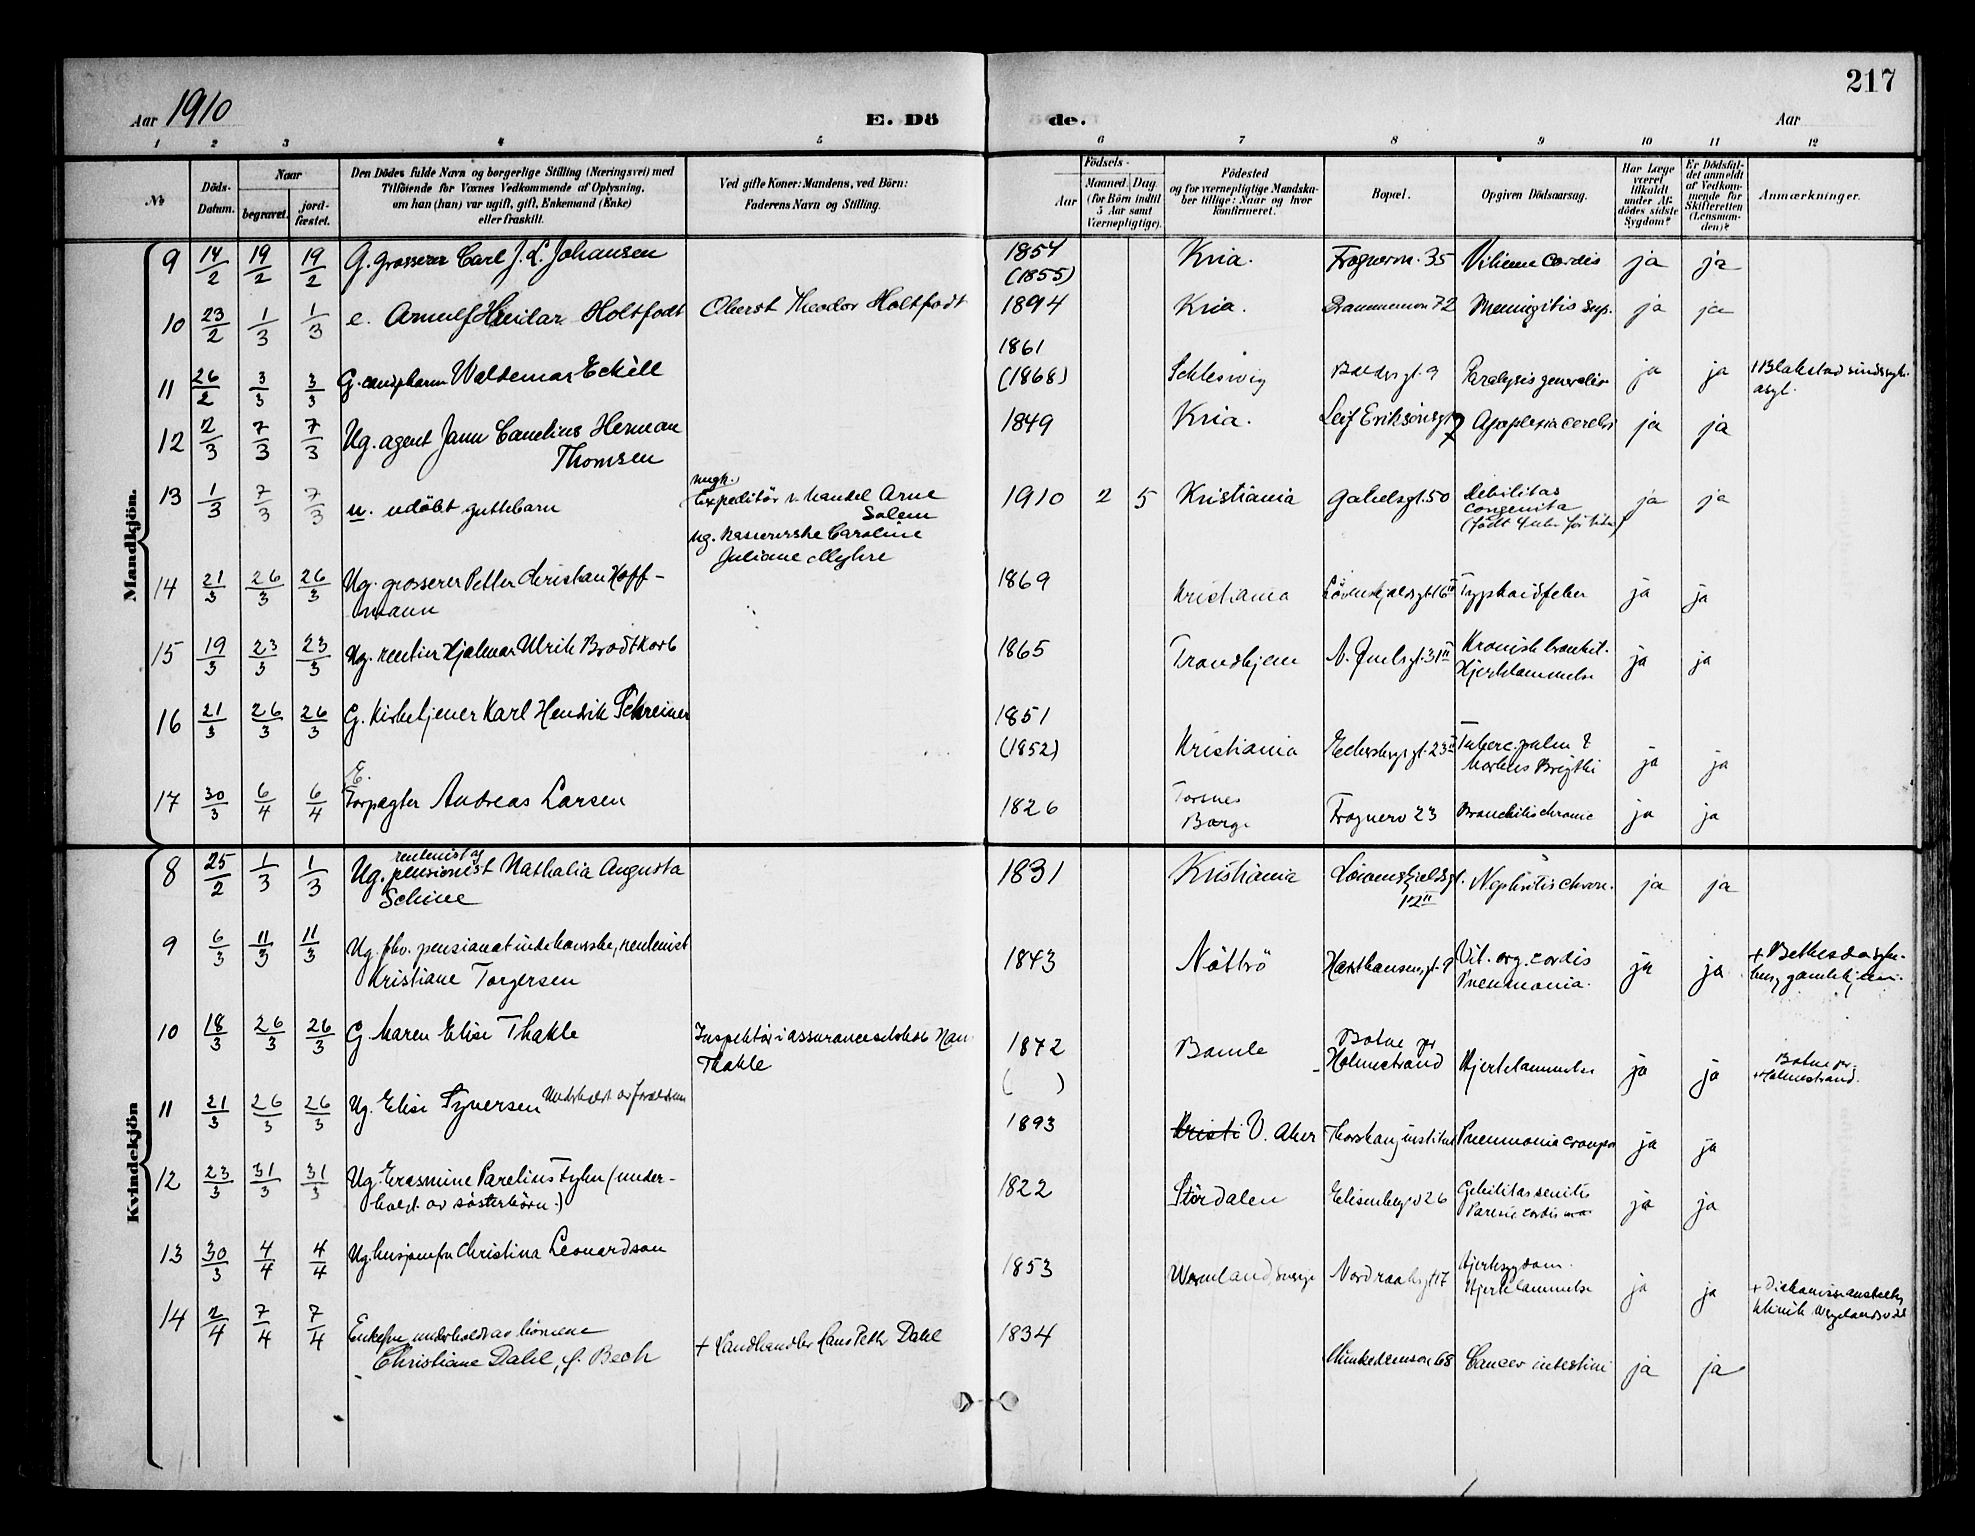 217
Aar 1910
E. Dö
de.
Aar
1 2 3 4 5 6 7 8 9 10 11 12
No
Döds-Datum.
Naar
begravet.
jord-fæstet.
Den Dödes fulde Navn og borgerlige Stilling (Næringsvei) med
Tilföiende for Voxnes Vedkommende af Oplysning,
om han (hun) var ugift, gift, Enkemand (Enke)
eller fraskilt.
Ved gifte Koner: Mandens, ved Börn:
Faderens Navn og Stilling.
Födsels-
Aar
Maaned. Dag.
(for Börn indtil
5 Aar samt
Værnepligtige).
Födested
og for værnepligtige Mandska-
ber tillige: Naar og hvor
konfirmeret.
Bopæl.
Opgiven Dödsaarsag.
Har Læge
været
tilkaldt
under Af-
dödes sidste
Sygdom?
Er Dödsfal-
det anmeldt
af Vedkom-
mende for
Skifteretten
(Lensman-
den)?
Anmærkninger.
Mandkjön.
9 14/2 19/2 19/2 G. Grosserer Carl J. L. Johansen 1854 (1855) Kria. Frognerv. 35 Vitium cordis ja ja
10 23/2 1/3 1/3 e. Arnulf Holtfodt Oberst Theodor Holtfodt 1894 Kria. Drammensv 72 Meningitis sup. ja ja
11 26/2 3/3 3/3 G. cand pharm Waldemar Eckell 1861 (1868) Schleswig gt. 9 Paralysis generalis ja ja Blakstad sindssyk. asyl.
12 2/3 7/3 7/3 Ug. agent Jann Cornelius Herman
Thomsen 1849 Kria. Leif Eriksönsgt 7 Apoplexia cerebri ja ja
13 1/3 7/3 7/3 u. udöbt guttebarn
ungk.
Expeditör v. handel Arne
Salem
ug. Caroline
Juliane Myhre
1910 2 5 Kristiania Gabelsgt. 50 Debilitas
congenita
(födt 4 uker for tidl.) ja ja
14 21/3 26/3 26/3 Ug. grosserer Petter Christian Hoff-
mann 1869 Kristiania Lövenskjoldsgt 16 II Typhoidfeber ja ja
15 19/3 23/3 23/3 Ug. rentier Hjalmar Ulrik Brodtkorb 1865 Trondhjem N. Juelsgt. 31 II Kronisk bronkit.
Hjertelammelse ja ja
16 21/3 26/3 26/3 G. Kirketjener Karl Hendrik Schreiner 1851 (1852) Kristiania Eckersbergsgt. 23 II Tuberc. pulm &
Morbus Brigthi ja ja
17 30/3 6/4 6/4 E.
Forpagter Andreas Larsen 1826 Torsnes
Borge Frognerv 23 Bronchitis chronic ja ja
Kvindekjön
8 25/2 1/3 1/3 Ug. rentenist og
pensionist Nathalia Augusta
Schive 1831 Kristiania Lövenskjoldsgt.
12 II Nephritis chron. ja ja
9 6/3 11/3 11/3 Ug. fhv. pensionatindehaverske, rentenist
Kristiane Torgersen 1843 Nöttrö Harthausensgt. 9 Vit. org. cordis
Pneumonia. ja ja + Bethesda syke-
hus, gamlehjem.
10 18/3 26/3 26/3 G. Maren Elise Thakle Inspektör i assuranceselskab Hans
Thakle 1872 ( ) Bamle Botne pr
Holmestrand Hjertelammelse ja ja Botne pr.
+ Holmestrand.
11 21/3 26/3 26/3 Ug. Elise Syversen Underholdt av forældrene 1893 Kristi V. Aker Thorshaug institut Pneumonia croupos ja ja
12 23/3 31/3 31/3 Ug. Erasmine Parelius Tyhn (under-
holdt av sösterbörn.) 1822 Stördalen Elisenbergv 26 Debilitas senilis
Paresis cordis ja ja
13 30/3 4/4 4/4 Ug. husjomfru Christina Leonardson 1853 Wermland, Sverige Nordraaksgt 17 Hjertesygdom.
Hjertelammelse ja ja + Diakonisseanstaltens
klinik Wergelandsv
14 2/4 7/4 7/4 Enkefru underholdt av börnene
Christiane Dahl, f. Bech + Landhandler Hans Petter Dahl 1834 Munkedamsv 68 Cancer intestini ja ja